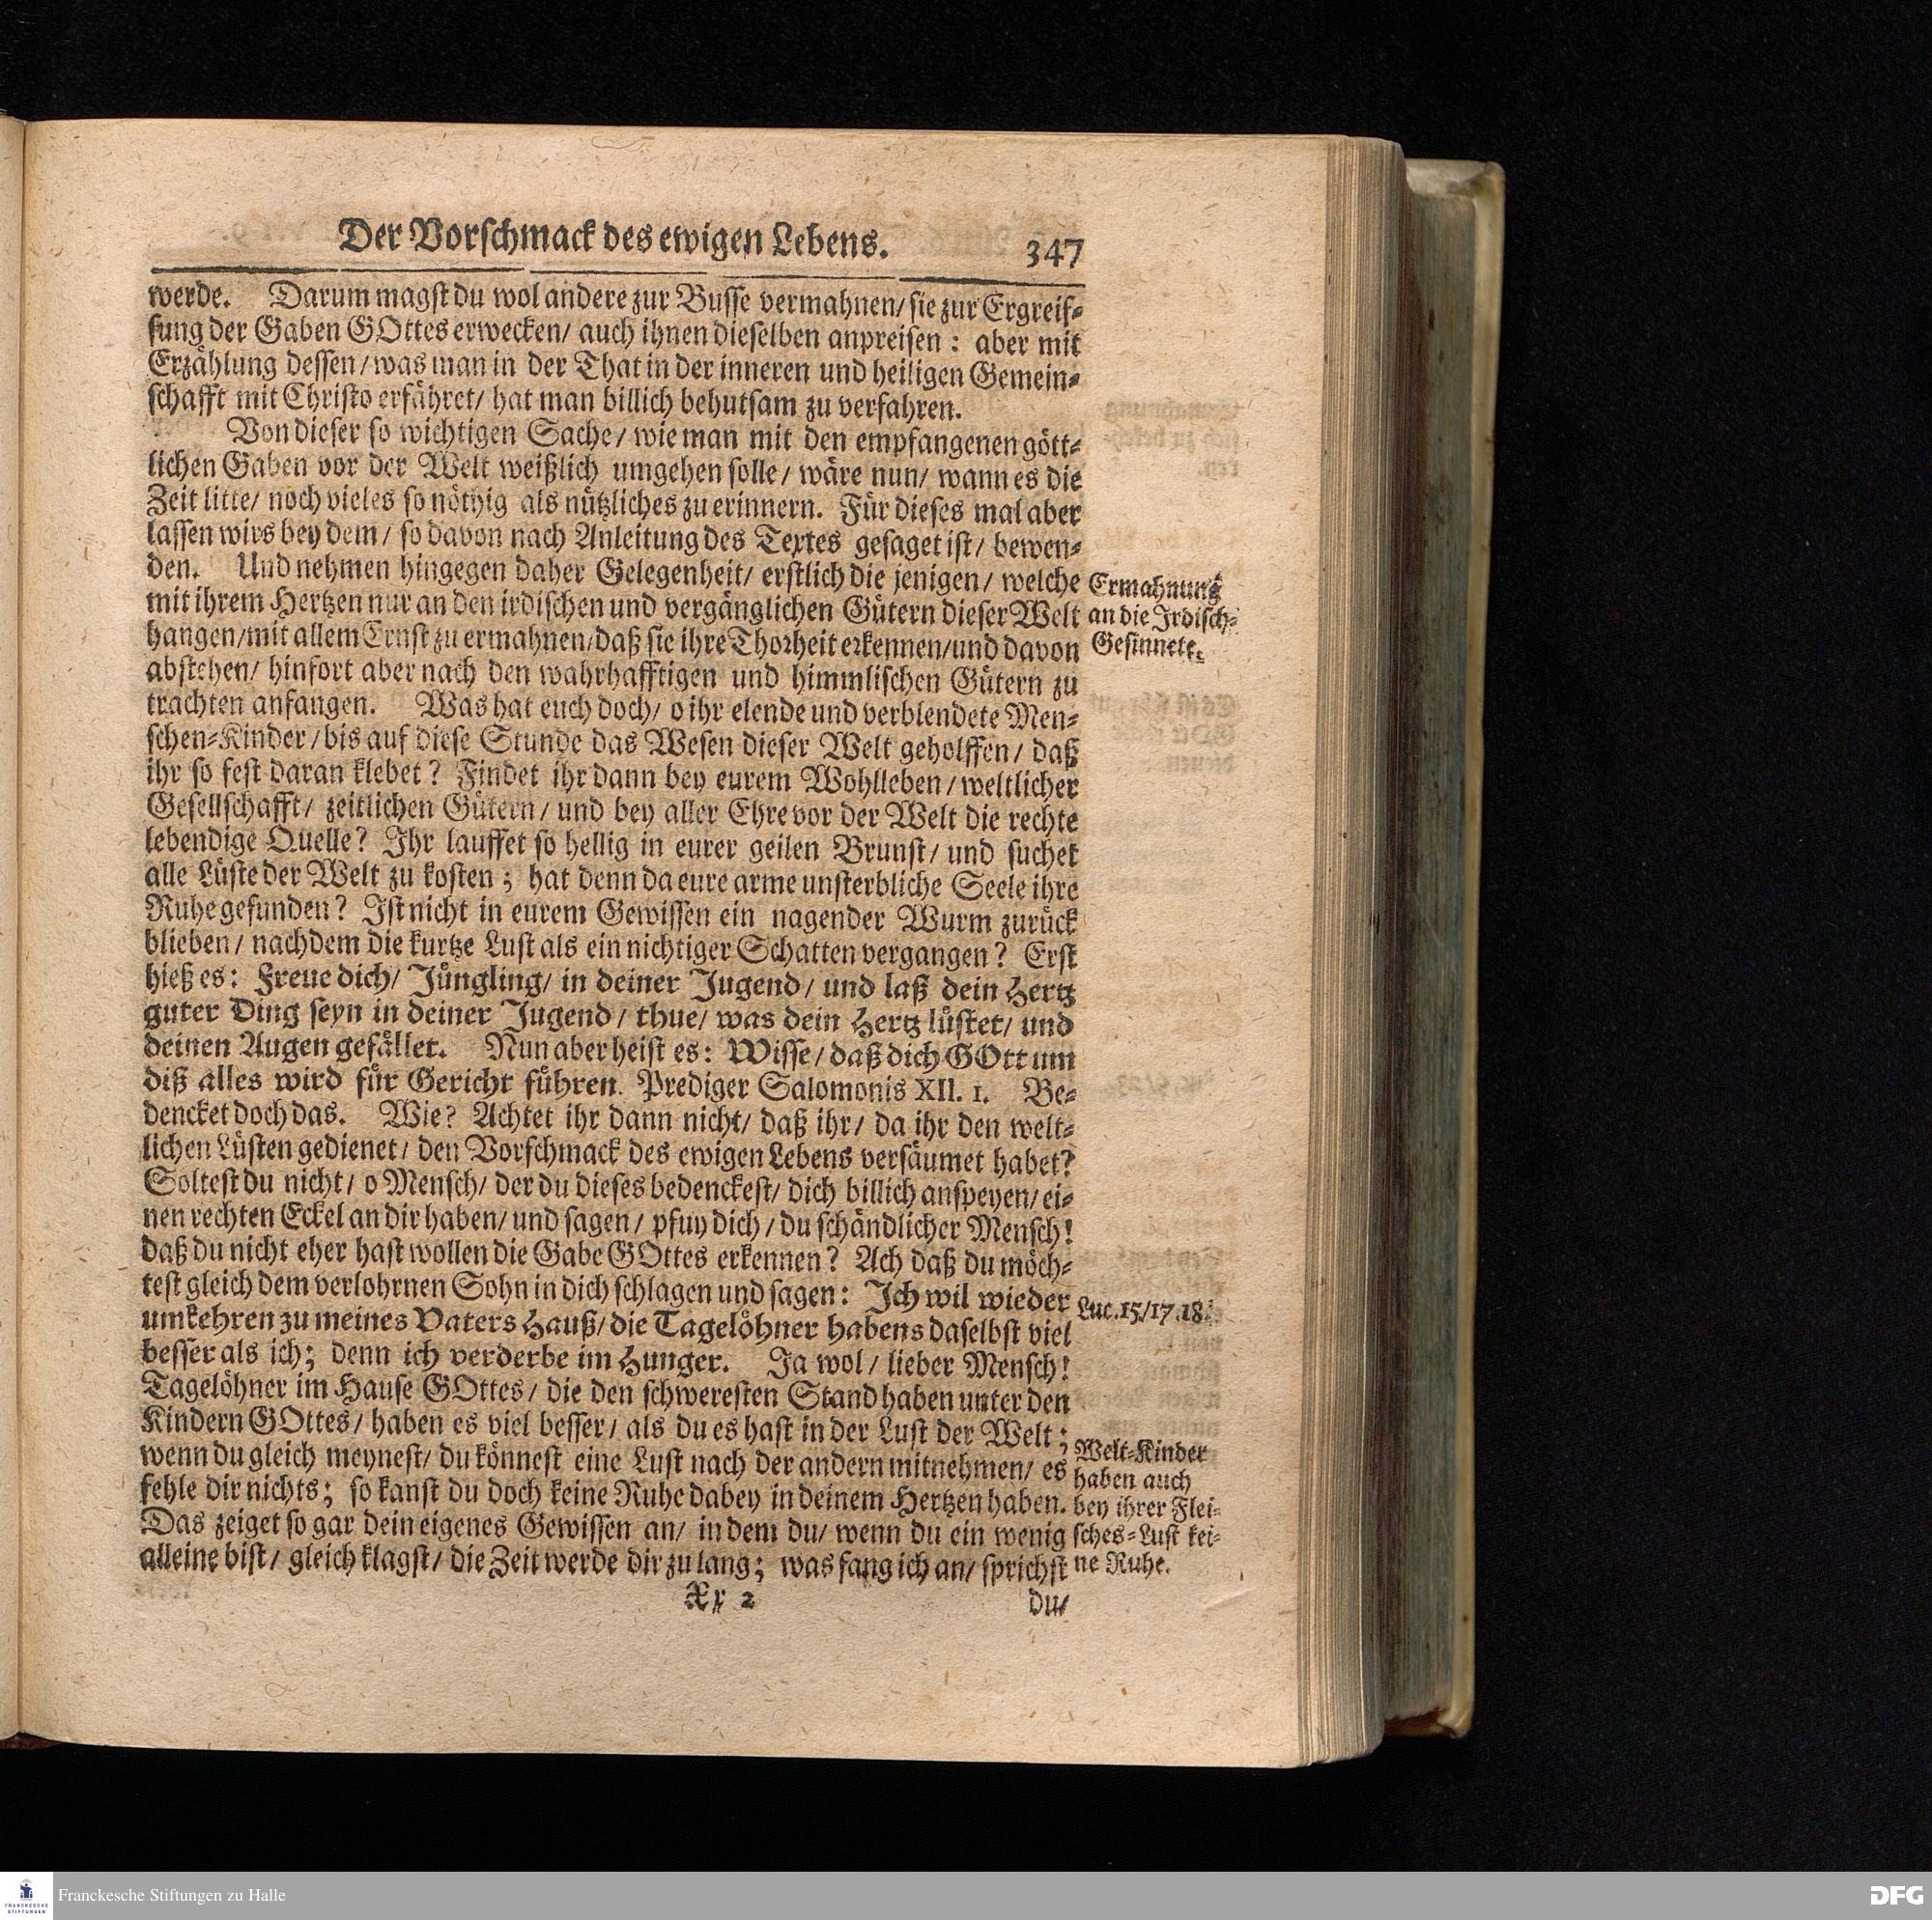 Der Vorschmack des ewigen Lebens. 347
werde. Darum magst du wol andere zur Busse vermahnen/ sie zur Ergreif-
fung der Gaben GOttes erwecken/ auch ihnen dieselben anpreisen: aber mit
Erzählung dessen/ was man in der That in der inneren und heiligen Gemein-
schafft mit Christo erfähret/ hat man billich behutsam zu verfahren.
Von dieser so wichtigen Sache/ wie man mit den empfangenen gött-
lichen Gaben vor der Welt weißlich umgehen solle/ wäre nun/ wann es die
Zeit litte/ noch vieles so nöthig als nützliches zu erinnern. Für dieses mal aber
lassen wirs bey dem/ so davon nach Anleitung des Textes gesaget ist/ bewen-
den. Und nehmen hingegen daher Gelegenheit/ erstlich die jenigen/ welche
mit ihrem Hertzen nur an den irdischen und vergänglichen Gütern dieser Welt
hangen/ mit allem Ernst zu ermahnen/ daß sie ihre Thorheit erkennen/ und davon
abstehen/ hinfort aber nach den wahrhafftigen und himmlischen Gütern zu
trachten anfangen. Was hat euch doch/ o ihr elende und verblendete Men-
schen-Kinder/ bis auf diese Stunde das Wesen dieser Welt geholffen/ daß
ihr so fest daran klebet? Findet ihr dann bey eurem Wohlleben/ weltlicher
Gesellschafft/ zeitlichen Gütern/ und bey aller Ehre vor der Welt die rechte
lebendige Quelle? Ihr lauffet so hellig in eurer geilen Brunst/ und suchet
alle Lüste der Welt zu kosten; hat denn da eure arme unsterbliche Seele ihre
Ruhe gefunden? Ist nicht in eurem Gewissen ein nagender Wurm zurück
blieben/ nachdem die kurtze Lust als ein nichtiger Schatten vergangen? Erst
hieß es: Freue dich/ Jüngling/ in deiner Jugend/ und laß dein Hertz
guter Ding seyn in deiner Jugend/ thue/ was dein Hertz lüstet/ und
deinen Augen gefället. Nun aber heist es: Wisse/ daß dich GOtt um
diß alles wird für Gericht führen. Prediger Salomonis XII. 1. Be-
dencket doch das. Wie? Achtet ihr dann nicht/ daß ihr/ da ihr den welt-
lichen Lüsten gedienet/ den Vorschmack des ewigen Lebens versäumet habet?
Soltest du nicht/ o Mensch/ der du dieses bedenckest/ dich billich anspeyen/ ei-
nen rechten Eckel an dir haben/ und sagen/ pfuy dich/ du schändlicher Mensch!
daß du nicht eher hast wollen die Gabe GOttes erkennen? Ach daß du möch-
test gleich dem verlohrnen Sohn in dich schlagen und sagen: Ich wil wieder
umkehren zu meines Vaters Hauß/ die Tagelöhner habens daselbst viel
besser als ich; denn ich verderbe im Hunger. Ja wol/ lieber Mensch!
Tagelöhner im Hause GOttes/ die den schweresten Stand haben unter den
Kindern GOttes/ haben es viel besser/ als du es hast in der Lust der Welt;
wenn du gleich meynest/ du könnest eine Lust nach der andern mitnehmen/ es
fehle dir nichts; so kanst du doch keine Ruhe dabey in deinem Hertzen haben.
Das zeiget so gar dein eigenes Gewissen an/ in dem du/ wenn du ein wenig
alleine bist/ gleich klagst/ die Zeit werde dir zu lang; was fang ich an/ sprichst
Xx 2 du/
Ermahnung
an die Irdisch-
Gesinnete.
Luc. 15/17. 18.
Welt-Kinder
haben auch
bey ihrer Flei-
sches-Lust kei-
ne Ruhe.
FRANCKESCHE
STIFTUNGEN
Franckesche Stiftungen zu Halle
DFG